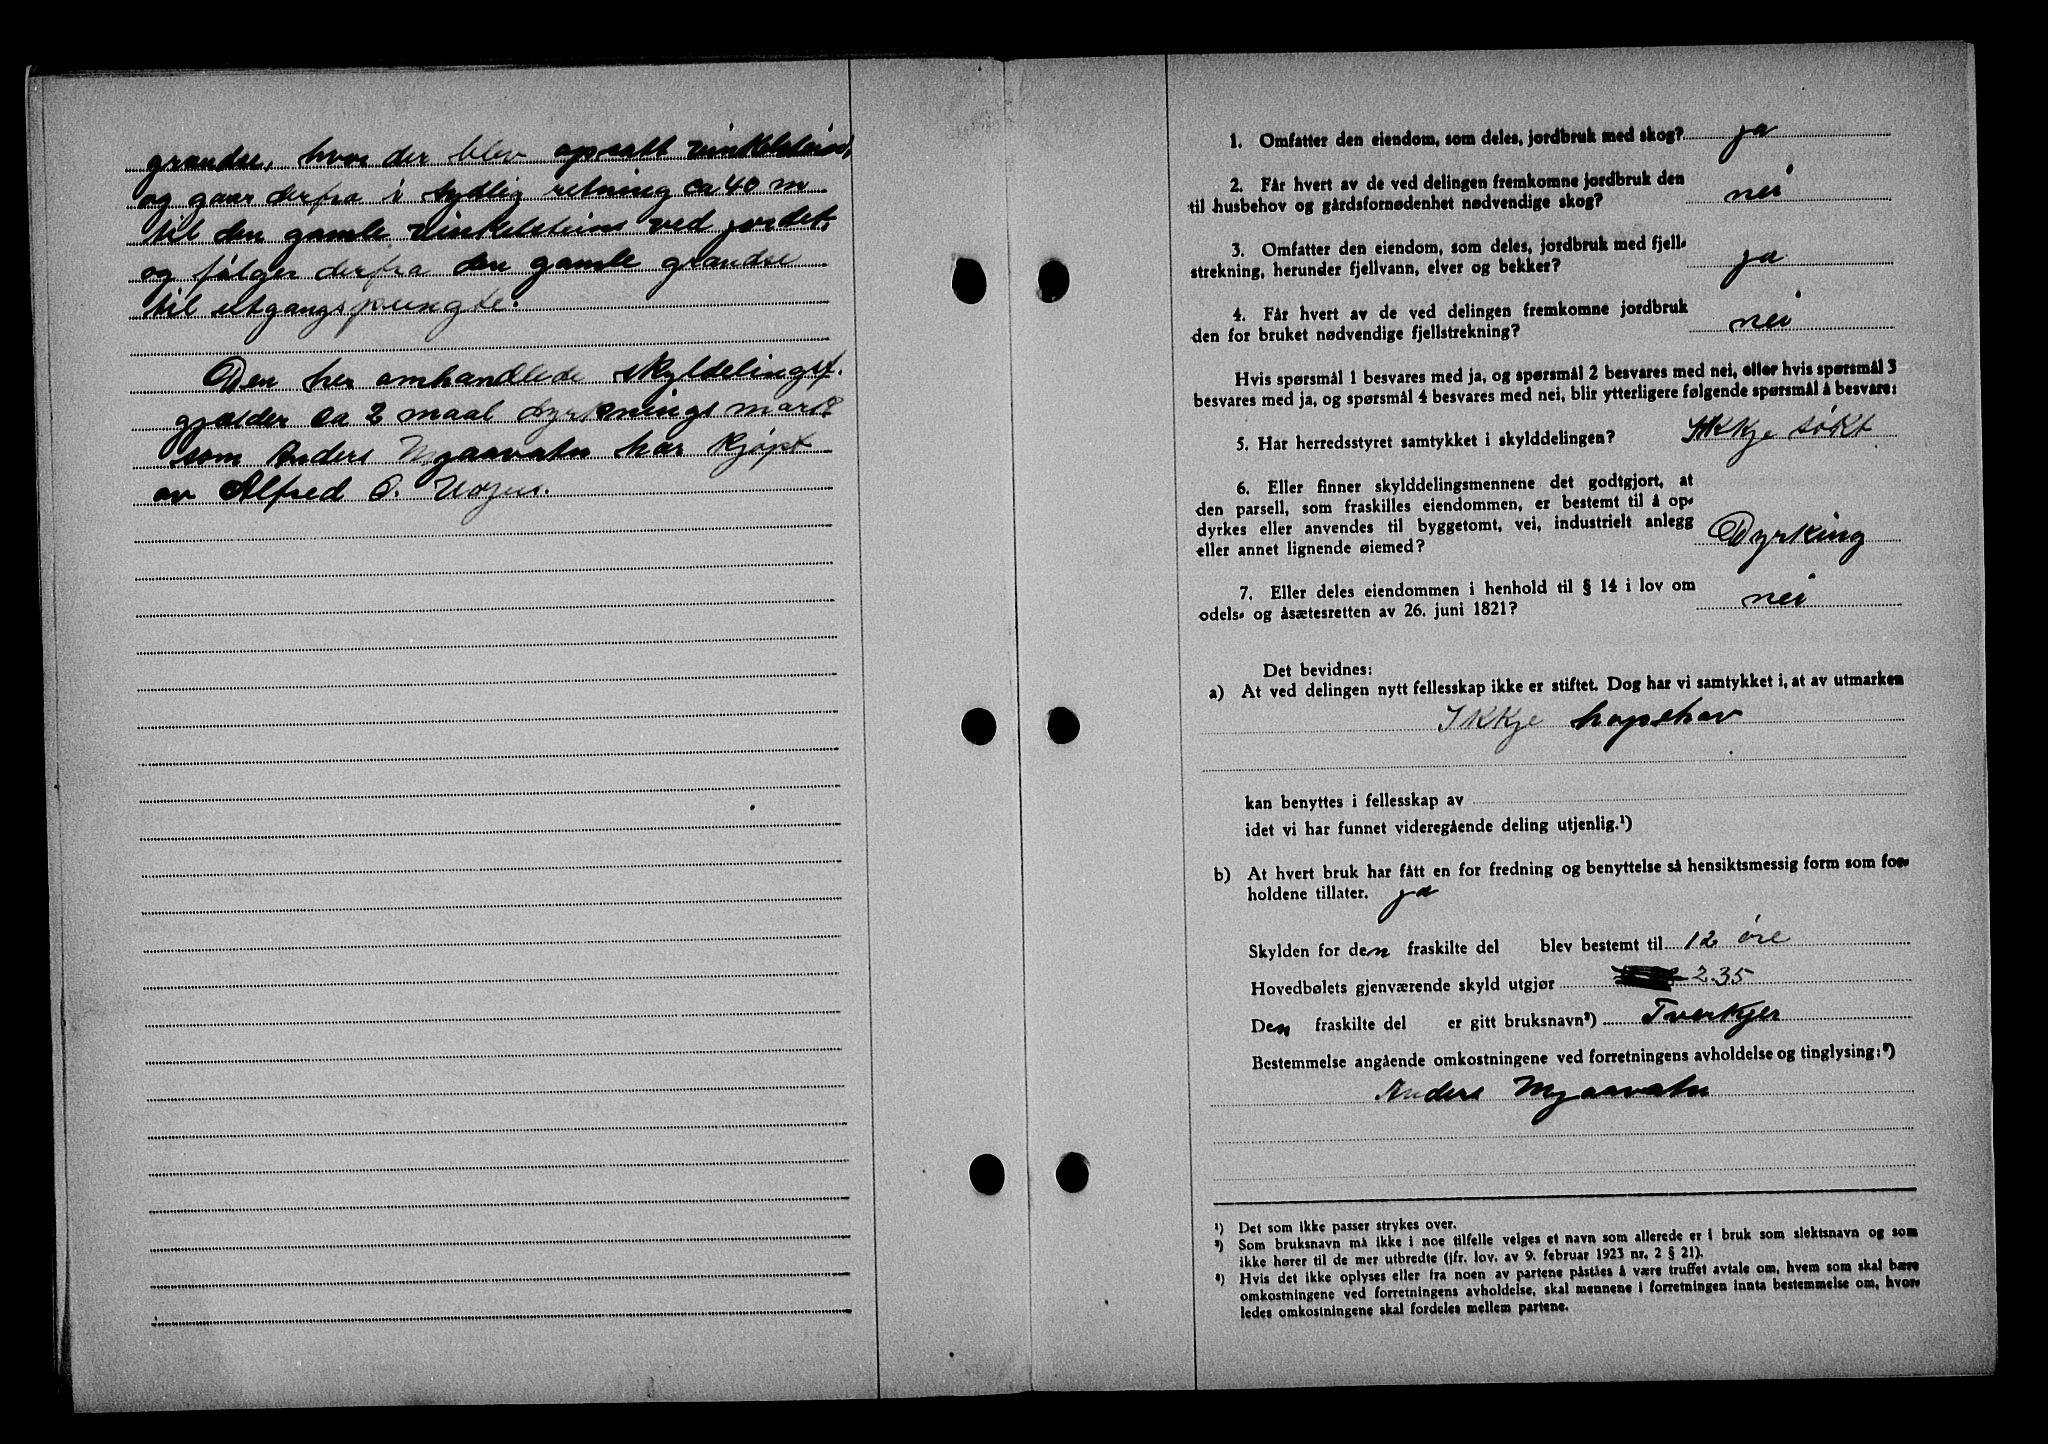 grændse, hvor der blev opsatt vinkelstein,
og gaar derfra i sydlig retning ca 40 m
til den gamle vinkelstein ved jordet,
og følger derfra den gamle grændse
til utgangspungte.
Den her omhandlede skyldelingsf.
gjælder ca 2 maal dyrknings mark
som Anders Myaavatn har kjøpt
av Alfred O.
1. Omfatter den eiendom, som deles, jordbruk med skog? ja
2. Får hvert av de ved delingen fremkomne jordbruk den
til husbehov og gårdsfornødenhet nødvendige skog? nei
3. Omfatter den eiendom, som deles, jordbruk med fjell-
strekning, herunder fjellvann, elver og bekker? ja
4. Får hvert av de ved delingen fremkomne jordbruk
den for bruket nødvendige fjellstrekning? nei
Hvis spørsmål 1 besvares med ja, og spørsmål 2 besvares med nei, eller hvis spørsmål 3
besvares med ja, og spørsmål 4 besvares med nei, blir ytterligere følgende spørsmål å besvare:
5. Har herredsstyret samtykket i skylddelingen? Ikkje søkt
6. Eller finner skylddelingsmennene det godtgjort, at
den parsell, som fraskilles eiendommen, er bestemt til å op-
dyrkes eller anvendes til byggetomt, vei, industrielt anlegg
eller annet lignende øiemed? Dyrking
7. Eller deles eiendommen i henhold til § 14 i lov om
odels- og åsætesretten av 26. juni 1821? nei
Det bevidnes:
a) At ved delingen nytt fellesskap ikke er stiftet. Dog har vi samtykket i, at av utmarken
Ikkje hopehav
kan benyttes i fellesskap av
idet vi har funnet videregående deling utjenlig.¹)
b) At hvert bruk har fått en for fredning og benyttelse så hensiktsmessig form som for-
holdene tillater. ja
Skylden for den fraskilte del blev bestemt til 12 øre
Hovedbølets gjenværende skyld utgjør 2.35
Den fraskilte del er gitt bruksnavn²) Tverkjer
Bestemmelse angående omkostningene ved forretningens avholdelse og tinglysing:³)
Anders Myaavatn
¹) Det som ikke passer strykes over.
²) Som bruksnavn må ikke i noe tilfelle velges et navn som allerede er i bruk som slektsnavn og som
ikke hører til de mer utbredte (jfr. lov. av 9. februar 1923 nr. 2 § 21).
³) Hvis det ikke oplyses eller fra noen av partene påståes å være truffet avtale om, hvem som skal bære
omkostningene ved forretningens avholdelse, skal mennene i forretningen innta bestemmelse om, hvor-
ledes omkostningene skal fordeles mellem partene.